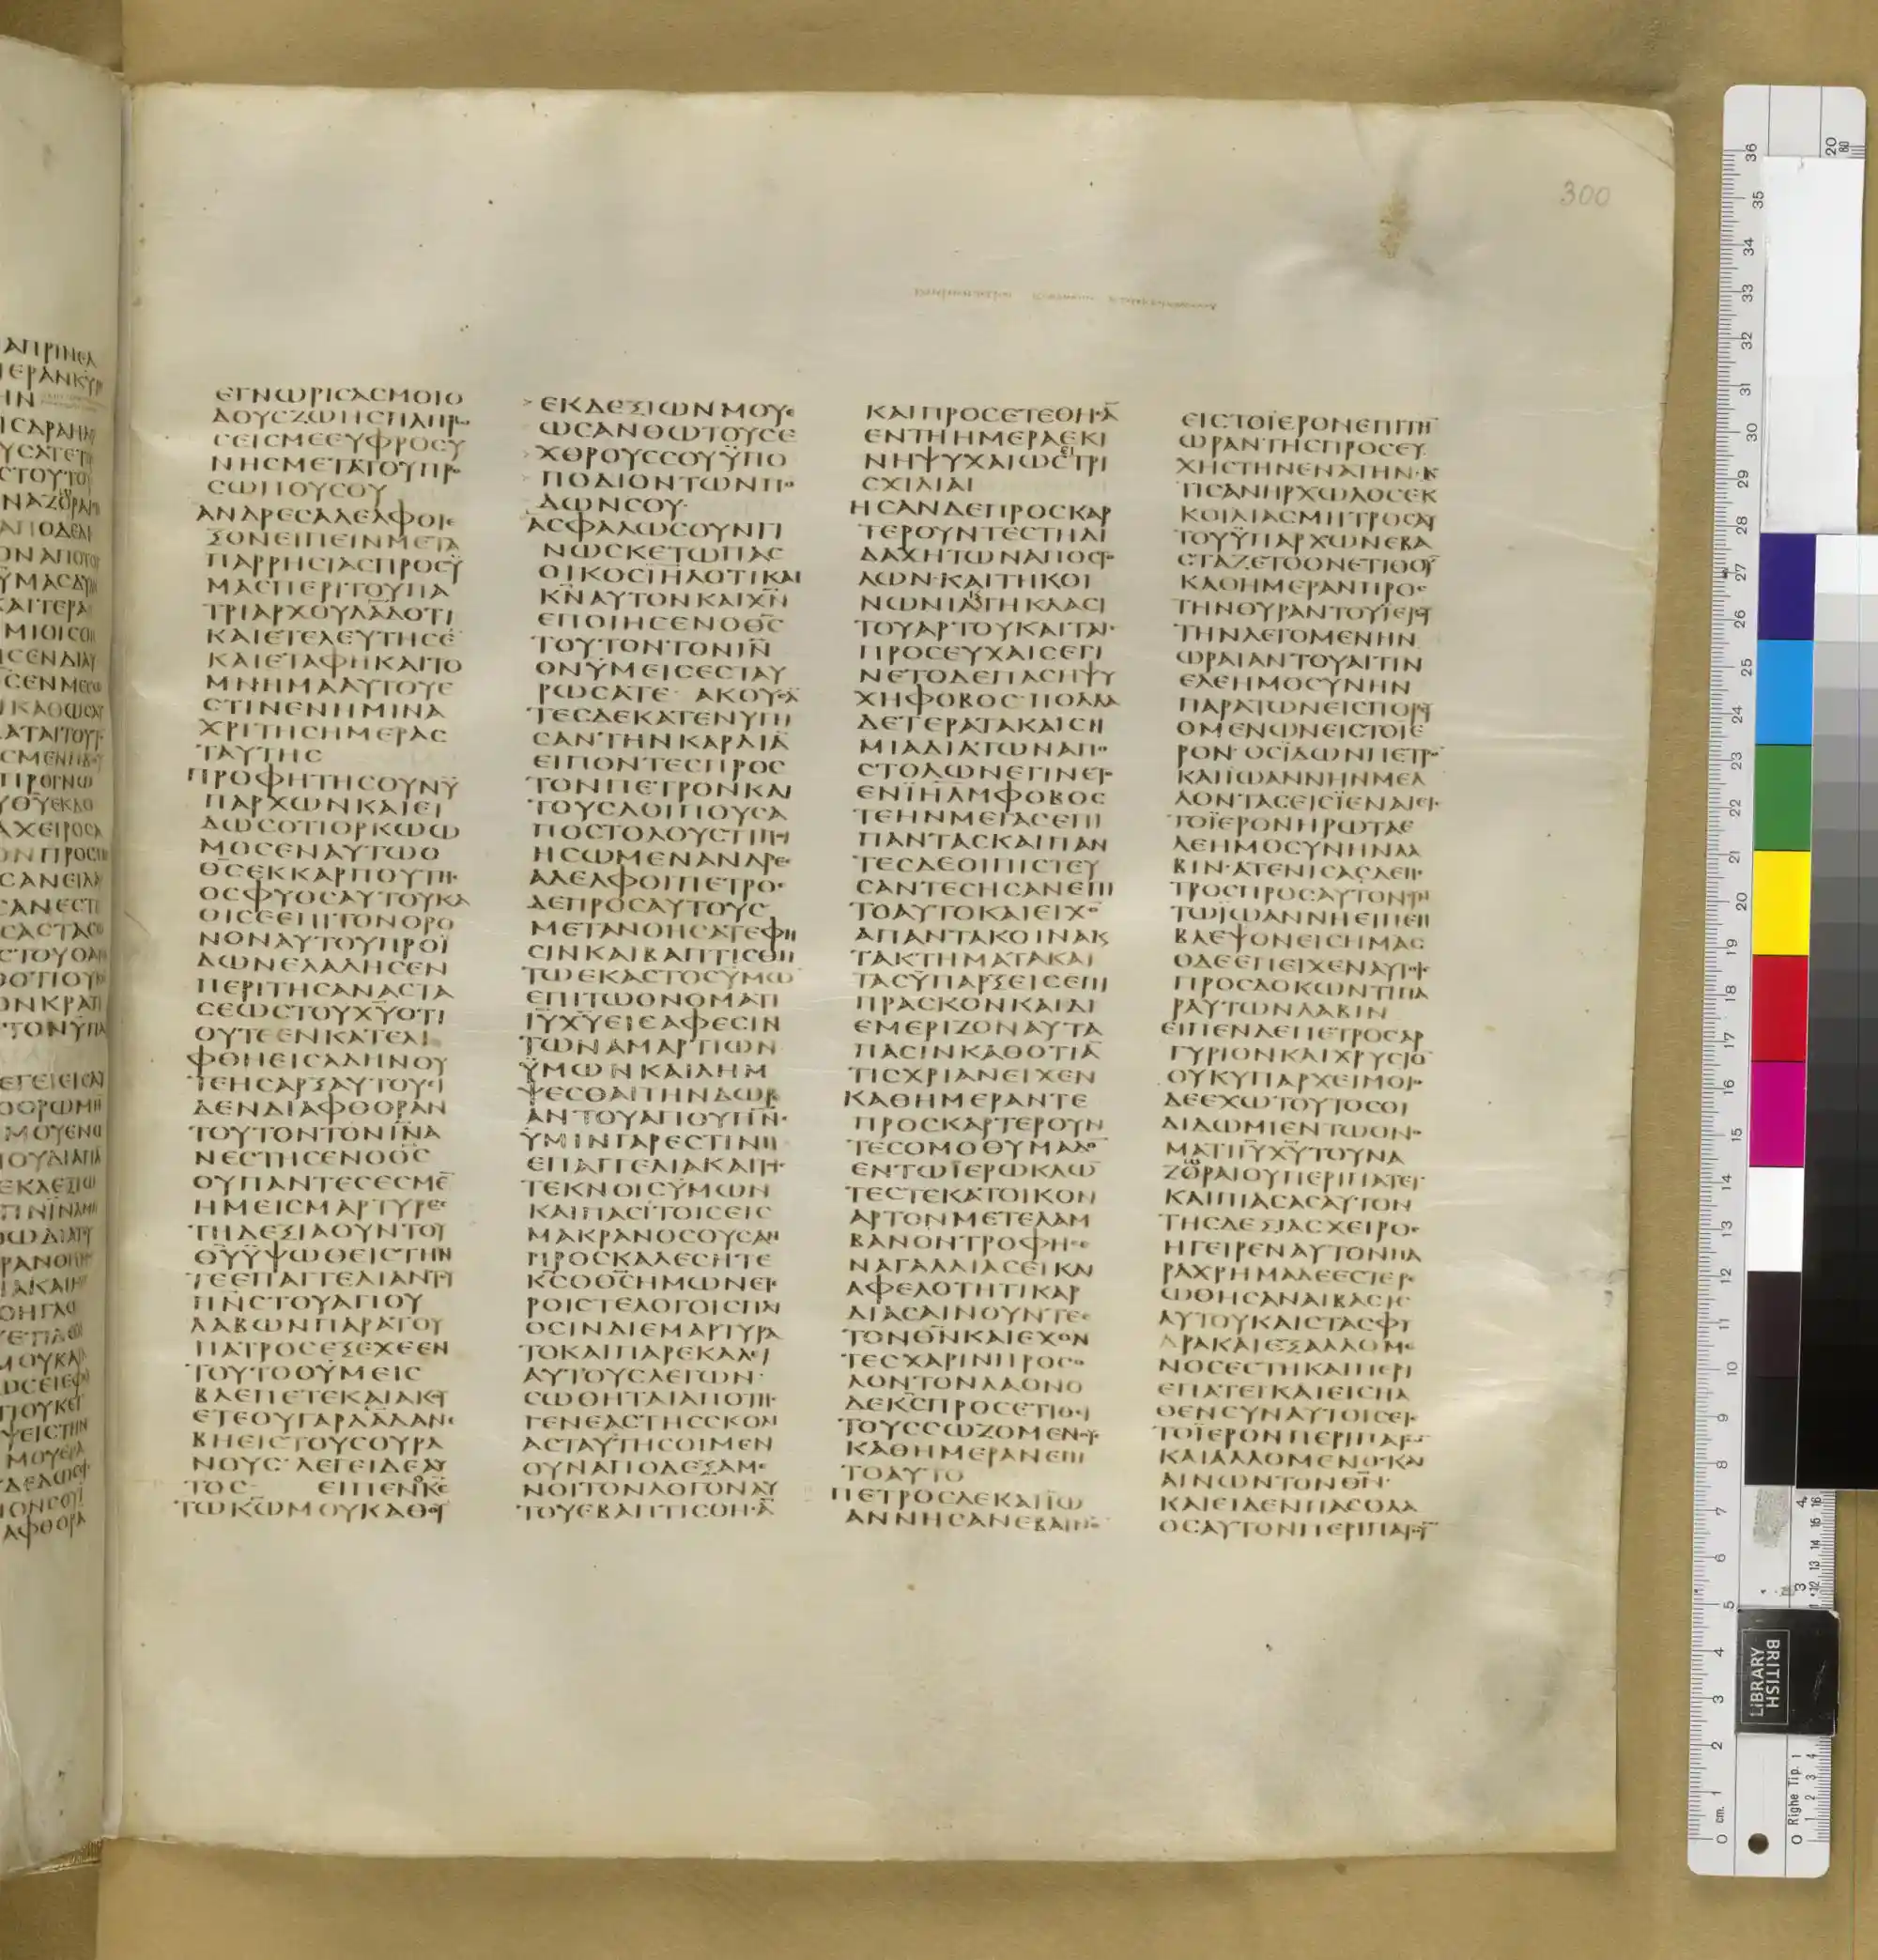 300
ΕΓΝΩΡΙCΑCΜΟΙΟ
ΔΟΥCΖΩΗCΠΛΗΡΩ
CΕΙCΜΕΕΥΦΡΟCΥ
ΝΗCΜΕΤΑΤΟΥΠΡΟ
CΩΠΟΥCΟΥ
ΑΝΔΡΕCΑΔΕΛΦΟΙΕ
ΞΟΝΕΙΠΕΙΝΜΕΤΑ
ΠΑΡΡΗCΙΑCΠΡΟCΫ
ΜΑCΠΕΡΙΤΟΥΠΑ
ΤΡΙΑΡΧΟΥΔΑ̅Δ̅ΟΤΙ
ΚΑΙΕΤΕΛΕΥΤΗCΕ̅
ΚΑΙΕΤΑΦΗΚΑΙΤΟ
ΜΝΗΜΑΑΥΤΟΥΕ
CΤΙΝΕΝΗΜΙΝΑ
ΧΡΙΤΗCΗΜΕΡΑC
ΤΑΥΤΗC
ΠΡΟΦΗΤΗCΟΥΝΫ
ΠΑΡΧΩΝΚΑΙΕΙ
ΔΩCΟΤΙΟΡΚΩΩ
ΜΟCΕΝΑΥΤΩΟ
Θ̅C̅ΕΚΚΑΡΠΟΥΤΗC
ΟCΦΥΟCΑΥΤΟΥΚΑ
ΘΙCΕΕΠΙΤΟΝΘΡΟ
ΝΟΝΑΥΤΟΥΠΡΟΪ
ΔΩΝΕΛΑΛΗCΕΝ
ΠΕΡΙΤΗCΑΝΑCΤΑ
CΕΩCΤΟΥΧ̅Υ̅ΟΤΙ
ΟΥΤΕΕΝΚΑΤΕΛΙ
ΦΘΗΕΙCΑΔΗΝΟΥ
ΤΕΗCΑΡΞΑΥΤΟΥΕΙ
ΔΕΝΔΙΑΦΘΟΡΑΝ
ΤΟΥΤΟΝΤΟΝΙ̅Ν̅Α
ΝΕCΤΗCΕΝΟΘ̅C̅
ΟΥΠΑΝΤΕCΕCΜΕ̅
ΗΜΕΙCΜΑΡΤΥΡΕC
ΤΗΔΕΞΙΑΟΥΝΤΟΥ
Θ̅Υ̅ΫΨΩΘΕΙCΤΗΝ
ΤΕΕΠΑΓΓΕΛΙΑΝΤΟΥ
Π̅Ν̅C̅ΤΟΥΑΓΙΟΥ
ΛΑΒΩΝΠΑΡΑΤΟΥ
ΠΑΤΡΟCΕΞΕΧΕΕΝ
ΤΟΥΤΟΟΫΜΕΙC
ΒΛΕΠΕΤΕΚΑΙΑΚΟΥ
ΕΤΕΟΥΓΑΡΔΑ̅Δ̅ΑΝΕ
ΒΗΕΙCΤΟΥCΟΥΡΑ
ΝΟΥC·ΛΕΓΕΙΔΕΑΥ
ΤΟC· ΕΙΠΕΝΟΚ̅C̅
ΤΩΚ̅Ω̅ΜΟΥΚΑΘΟΥ
ΕΚΔΕΞΙΩΝΜΟΥΕ
ΩCΑΝΘΩΤΟΥCΕ
ΧΘΡΟΥCCΟΥΫΠΟ
ΠΟΔΙΟΝΤΩΝΠΟ
ΔΩΝCΟΥ·
ΑCΦΑΛΩCΟΥΝΓΙ
ΝΩCΚΕΤΩΠΑC
ΟΙΚΟCΪΗ̅Λ̅ΟΤΙΚΑΙ
Κ̅Ν̅ΑΥΤΟΝΚΑΙΧ̅Ν̅
ΕΠΟΙΗCΕΝΟΘ̅C̅
ΤΟΥΤΟΝΤΟΝΙ̅Ν̅
ΟΝΫΜΕΙCΕCΤΑΥ
ΡΩCΑΤΕ ΑΚΟΥCΑ̅
ΤΕCΔΕΚΑΤΕΝΥΓΗ
CΑΝΤΗΝΚΑΡΔΙΑ̅
ΕΙΠΟΝΤΕCΠΡΟC
ΤΟΝΠΕΤΡΟΝΚΑΙ
ΤΟΥCΛΟΙΠΟΥCΑ
ΠΟCΤΟΛΟΥCΤΙΠΟΙ
ΗCΩΜΕΝΑΝΔΡΕC
ΑΔΕΛΦΟΙΠΕΤΡΟC
ΔΕΠΡΟCΑΥΤΟΥC
ΜΕΤΑΝΟΗCΑΤΕΦΗ
CΙΝΚΑΙΒΑΠΤΙCΘΗ
ΤΩΕΚΑCΤΟCΫΜΩ̅
ΕΠΙΤΩΟΝΟΜΑΤΙ
Ι̅Υ̅Χ̅Υ̅ΕΙCΑΦΕCΙΝ
ΤΩΝΑΜΑΡΤΙΩΝ
ΫΜΩΝΚΑΙΛΗΜ
ΨΕCΘΑΙΤΗΝΔΩΡΕ
ΑΝΤΟΥΑΓΙΟΥΠ̅Ν̅C̅
ΫΜΙΝΓΑΡΕCΤΙΝΗ
ΕΠΑΓΓΕΛΙΑΚΑΙΤΟΙC
ΤΕΚΝΟΙCΫΜΩΝ
ΚΑΙΠΑCΙΤΟΙCΕΙC
ΜΑΚΡΑΝΟCΟΥCΑΝ
ΠΡΟCΚΑΛΕCΗΤΕ
Κ̅C̅ΟΘ̅C̅ΗΜΩΝΕΤΕ
ΡΟΙCΤΕΛΟΓΟΙCΠΛΙ
ΟCΙΝΔΙΕΜΑΡΤΥΡΑ
ΤΟΚΑΙΠΑΡΕΚΑΛΕΙ
ΑΥΤΟΥCΛΕΓΩΝ·
CΩΘΗΤΑΙΑΠΟΤΗC
ΓΕΝΕΑCΤΗCCΚΟΛΙ
ΑCΤΑΥΤΗCΟΙΜΕΝ
ΟΥΝΑΠΟΔΕΞΑΜΕ
ΝΟΙΤΟΝΛΟΓΟΝΑΥ
ΤΟΥΕΒΑΠΤΙCΘΗCΑ̅
ΚΑΙΠΡΟCΕΤΕΘΗCΑ̅
ΕΝΤΗΗΜΕΡΑΕΚΙ
ΝΗΨΥΧΑΙΩCΕΙΤΡΙ
CΧΙΛΙΑΙ
ΗCΑΝΔΕΠΡΟCΚΑΡ
ΤΕΡΟΥΝΤΕCΤΗΔΙ
ΔΑΧΗΤΩΝΑΠΟCΤΟ
ΛΩΝ·ΚΑΙΤΗΚΟΙ
ΝΩΝΙΑΤΗΚΛΑCΙ
ΤΟΥΑΡΤΟΥΚΑΙΤΑΙC
ΠΡΟCΕΥΧΑΙCΕΓΙ
ΝΕΤΟΔΕΠΑCΗΨΥ
ΧΗΦΟΒΟC·ΠΟΛΛΑ
ΔΕΤΕΡΑΤΑΚΑΙCΗ
ΜΙΑΔΙΑΤΩΝΑΠΟ
CΤΟΛΩΝΕΓΙΝΕΤΟ
ΕΝΪΗ̅Λ̅Μ̅ΦΟΒΟC
ΤΕΗΝΜΕΓΑCΕΠΙ
ΠΑΝΤΑCΚΑΙΠΑΝ
ΤΕCΔΕΟΙΠΙCΤΕΥ
CΑΝΤΕCΗCΑΝΕΠΙ
ΤΟΑΥΤΟΚΑΙΕΙΧΟ̅
ΑΠΑΝΤΑΚΟΙΝΑΚ
ΤΑΚΤΗΜΑΤΑΚΑΙ
ΤΑCΫΠΑΡΞΕΙCΕΠΙ
ΠΡΑCΚΟΝΚΑΙΔΙ
ΕΜΕΡΙΖΟΝΑΥΤΑ
ΠΑCΙΝΚΑΘΟΤΙΑ̅
ΤΙCΧΡΙΑΝΕΙΧΕΝ
ΚΑΘΗΜΕΡΑΝΤΕ
ΠΡΟCΚΑΡΤΕΡΟΥΝ
ΤΕCΟΜΟΘΥΜΑΔΟ̅
ΕΝΤΩΪΕΡΩΚΛΩ̅
ΤΕCΤΕΚΑΤΟΙΚΟΝ
ΑΡΤΟΝΜΕΤΕΛΑΜ
ΒΑΝΟΝΤΡΟΦΗCΕ
ΝΑΓΑΛΛΙΑCΕΙΚΑΙ
ΑΦΕΛΟΤΗΤΙΚΑΡ
ΔΙΑCΑΙΝΟΥΝΤΕC
ΤΟΝΘ̅Ν̅ΚΑΙΕΧΟΝ
ΤΕCΧΑΡΙΝΠΡΟCΟ
ΛΟΝΤΟΝΛΑΟΝΟ
ΔΕΚ̅C̅ΠΡΟCΕΤΙΘΕΙ
ΤΟΥCCΩΖΟΜΕΝΟΥC
ΚΑΘΗΜΕΡΑΝΕΠΙ
ΤΟΑΥΤΟ
ΠΕΤΡΟCΔΕΚΑΙΪΩ
ΑΝΝΗCΑΝΕΒΑΙΝΟ̅
ΕΙCΤΟΪΕΡΟΝΕΠΙΤΗ̅
ΩΡΑΝΤΗCΠΡΟCΕΥ
ΧΗCΤΗΝΕΝΑΤΗΝ·Κ
ΤΙCΑΝΗΡΧΩΛΟCΕΚ
ΚΟΙΛΙΑCΜΗΤΡΟCΑΥ
ΤΟΥΫΠΑΡΧΩΝΕΒΑ
CΤΑΖΕΤΟΟΝΕΤΙΘΟΥ̅
ΚΑΘΗΜΕΡΑΝΠΡΟC
ΤΗΝΘΥΡΑΝΤΟΥΪΕΡΟΥ
ΤΗΝΛΕΓΟΜΕΝΗΝ
ΩΡΑΙΑΝΤΟΥΑΙΤΙΝ
ΕΛΕΗΜΟCΥΝΗΝ
ΠΑΡΑΤΩΝΕΙCΠΟΡΕΥ
ΟΜΕΝΩΝΕΙCΤΟΙΕ
ΡΟΝ·ΟCΪΔΩΝΠΕΤΡΟ̅
ΚΑΙΪΩΑΝΝΗΝΜΕΛ
ΛΟΝΤΑCΕΙCΪΕΝΑΙΕΙC
ΤΟΪΕΡΟΝΗΡΩΤΑΕ
ΛΕΗΜΟCΥΝΗΝΛΑ
ΒΙΝ·ΑΤΕΝΙCΑCΔΕΠΕ
ΤΡΟCΠΡΟCΑΥΤΟΝCΥΝ
ΤΩΪΩΑΝΝΗΕΙΠΕΝ
ΒΛΕΨΟΝΕΙCΗΜΑC
ΟΔΕΕΠΕΙΧΕΝΑΥΤΟΙC
ΠΡΟCΔΟΚΩΝΤΙΠΑ
ΡΑΥΤΩΝΛΑΒΙΝ
ΕΙΠΕΝΔΕΠΕΤΡΟCΑΡ
ΓΥΡΙΟΝΚΑΙΧΡΥCΙΟ̅
ΟΥΚΫΠΑΡΧΕΙΜΟΙΟ
ΔΕΕΧΩΤΟΥΤΟCΟΙ
ΔΙΔΩΜΙΕΝΤΩΟΝΟ
ΜΑΤΙΙ̅Υ̅Χ̅Υ̅ΤΟΥΝΑ
ΖΩΡΑΙΟΥΠΕΡΙΠΑΤΕΙ
ΚΑΙΠΙΑCΑCΑΥΤΟΝ
ΤΗCΔΕΞΙΑCΧΕΙΡΟC
ΗΓΕΙΡΕΝΑΥΤΟΝΠΑ
ΡΑΧΡΗΜΑΔΕΕCΤΕΡΕ
ΩΘΗCΑΝΑΙΒΑCΙC
ΑΥΤΟΥΚΑΙCΤΑCΦΥ
ΔΡΑΚΑΙΕΞΑΛΛΟΜΕ
ΝΟCΕCΤΗΚΑΙΠΕΡΙ
ΕΠΑΤΕΙΚΑΙΕΙCΗΛ
ΘΕΝCΥΝΑΥΤΟΙCΕΙC
ΤΟΪΕΡΟΝΠΕΡΙΠΑΤΩ̅
ΚΑΙΑΛΛΟΜΕΝΟCΚΑΙ
ΑΙΝΩΝΤΟΝΘ̅Ν̅·
ΚΑΙΕΙΔΕΝΠΑCΟΛΑ
ΟCΑΥΤΟΝΠΕΡΙΠΑΤΟΥ̅
BRITISH
LIBRARY